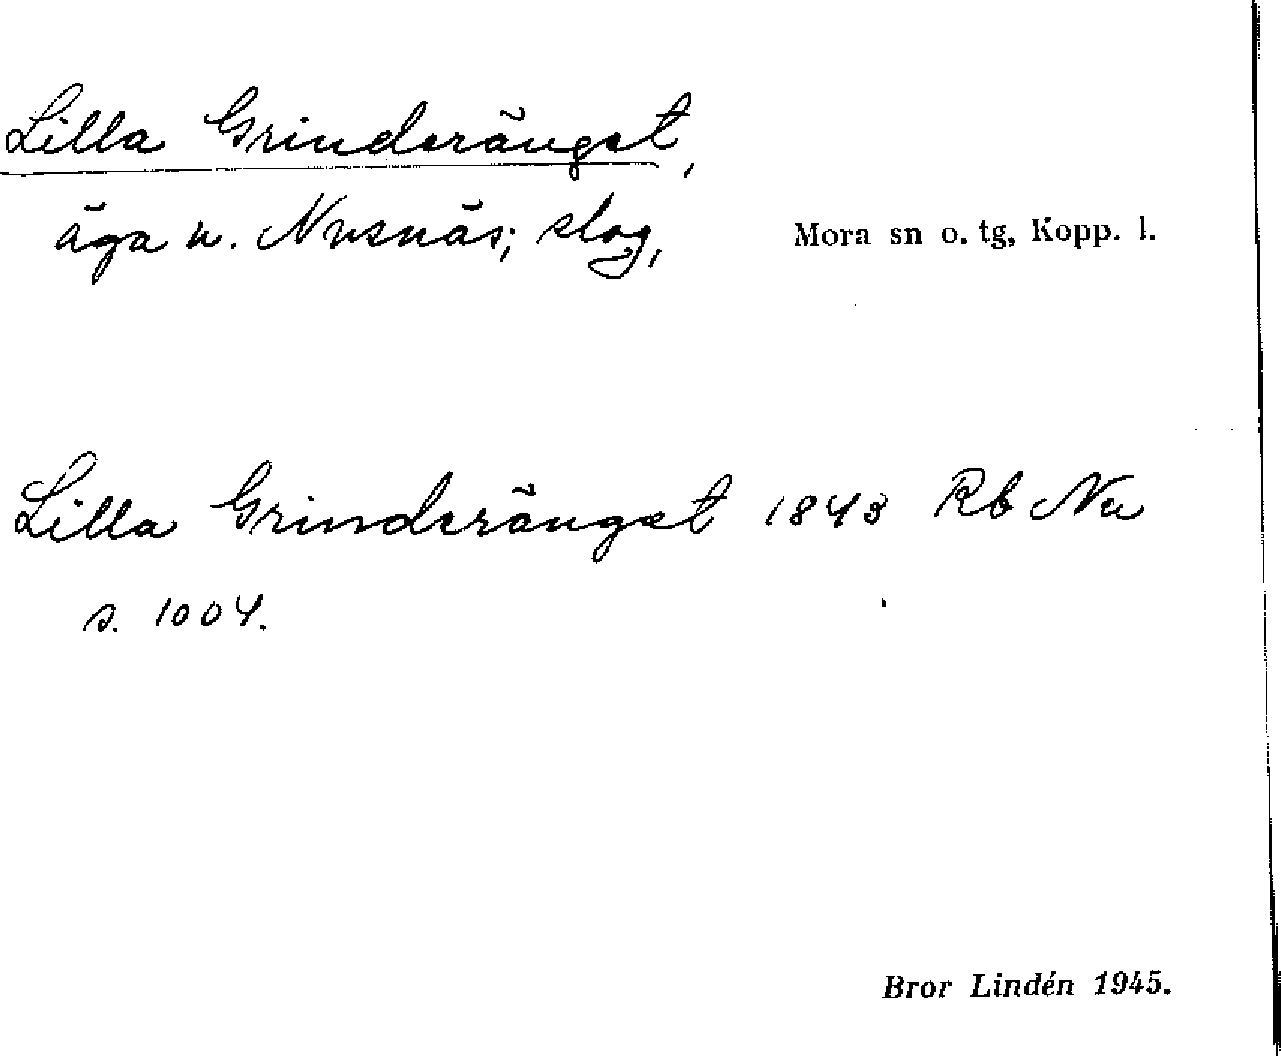 Lilla Grinderänget,
äga u. Nusnäs; slog,
Mora sn o. tg, Kopp. l.
Lilla Grinderänget 1843 Rb Nu
s. 1004.
Bror Lindén 1945.